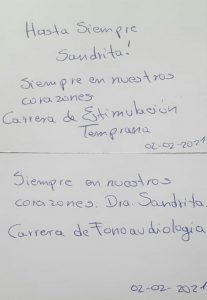 Hasta Siempre
Sandrita!
Siempre en nuestros
corazones
Carrera de Estimulación
Temprana
02-02-2021
Siempre en nuestros
corazones. Dra. Sandrita.
Carrera de Fonoaudiologia
02-02-2021